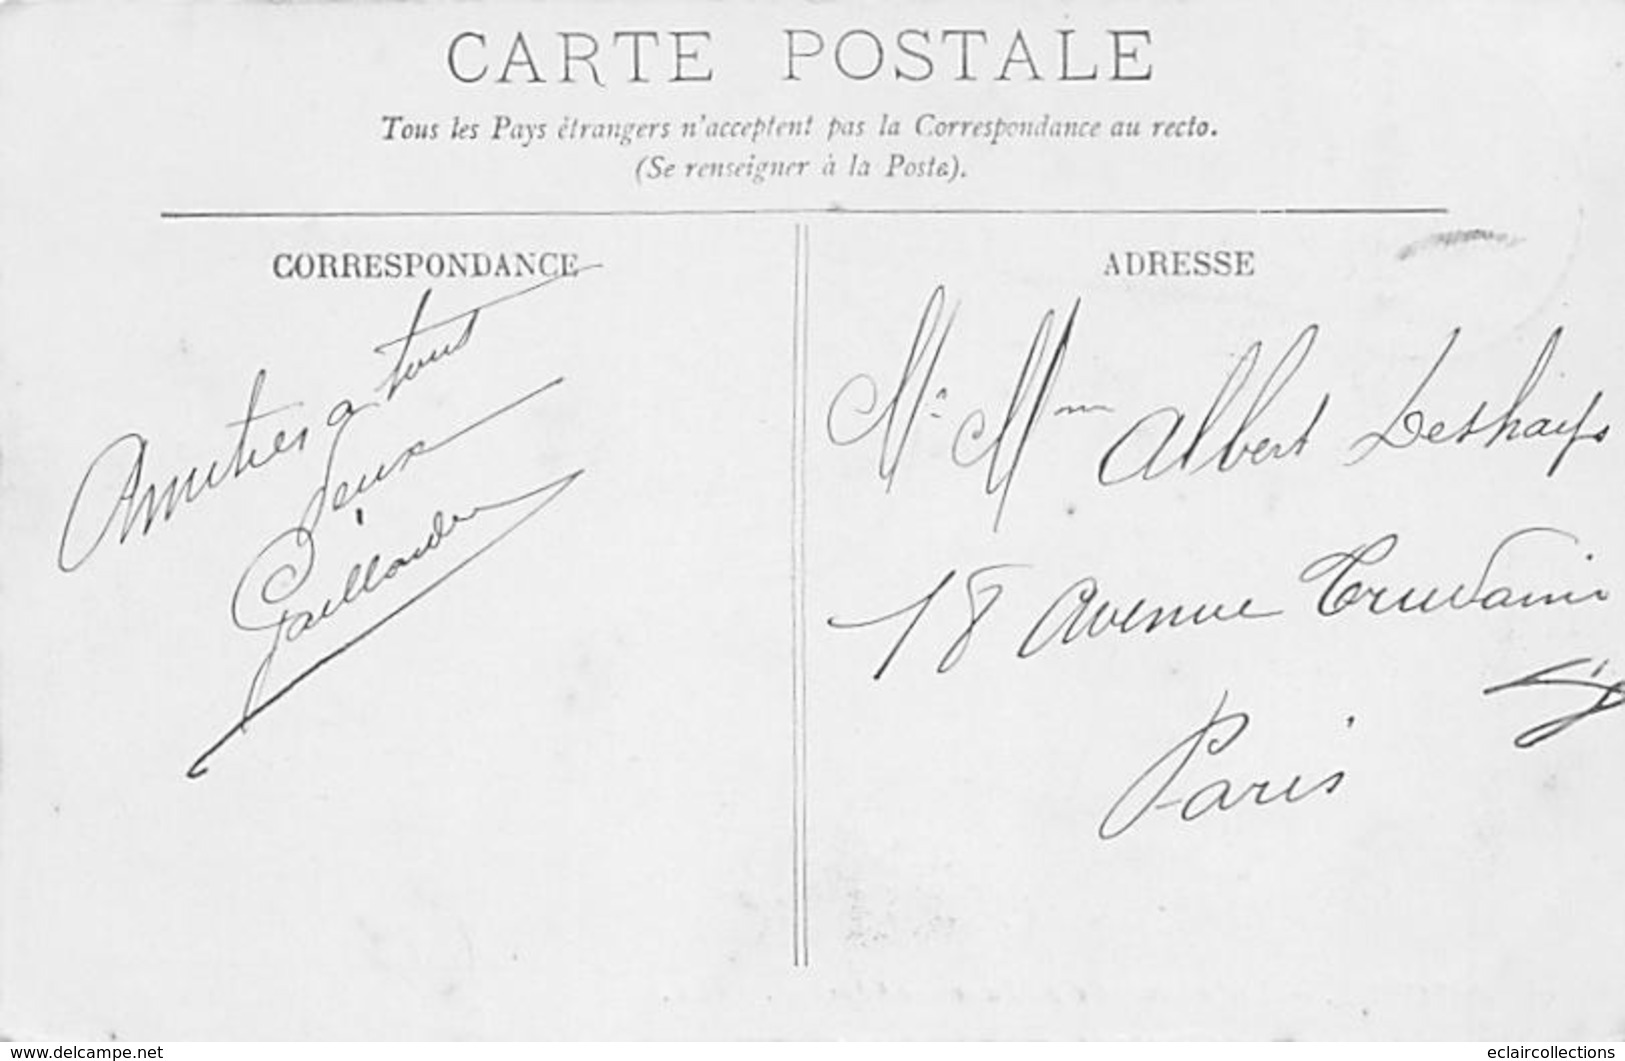 CARTE POSTALE
Tous les Pays étrangers n'acceptent pas la Correspondance au recto.
(Se renseigner à la Poste).
CORRESPONDANCE
Amitiés a tous
deux
ADRESSE
Mr Mme Albert Deshays
18 Avenue Trudaine
Paris
www.delcampe.net
eclaircollections